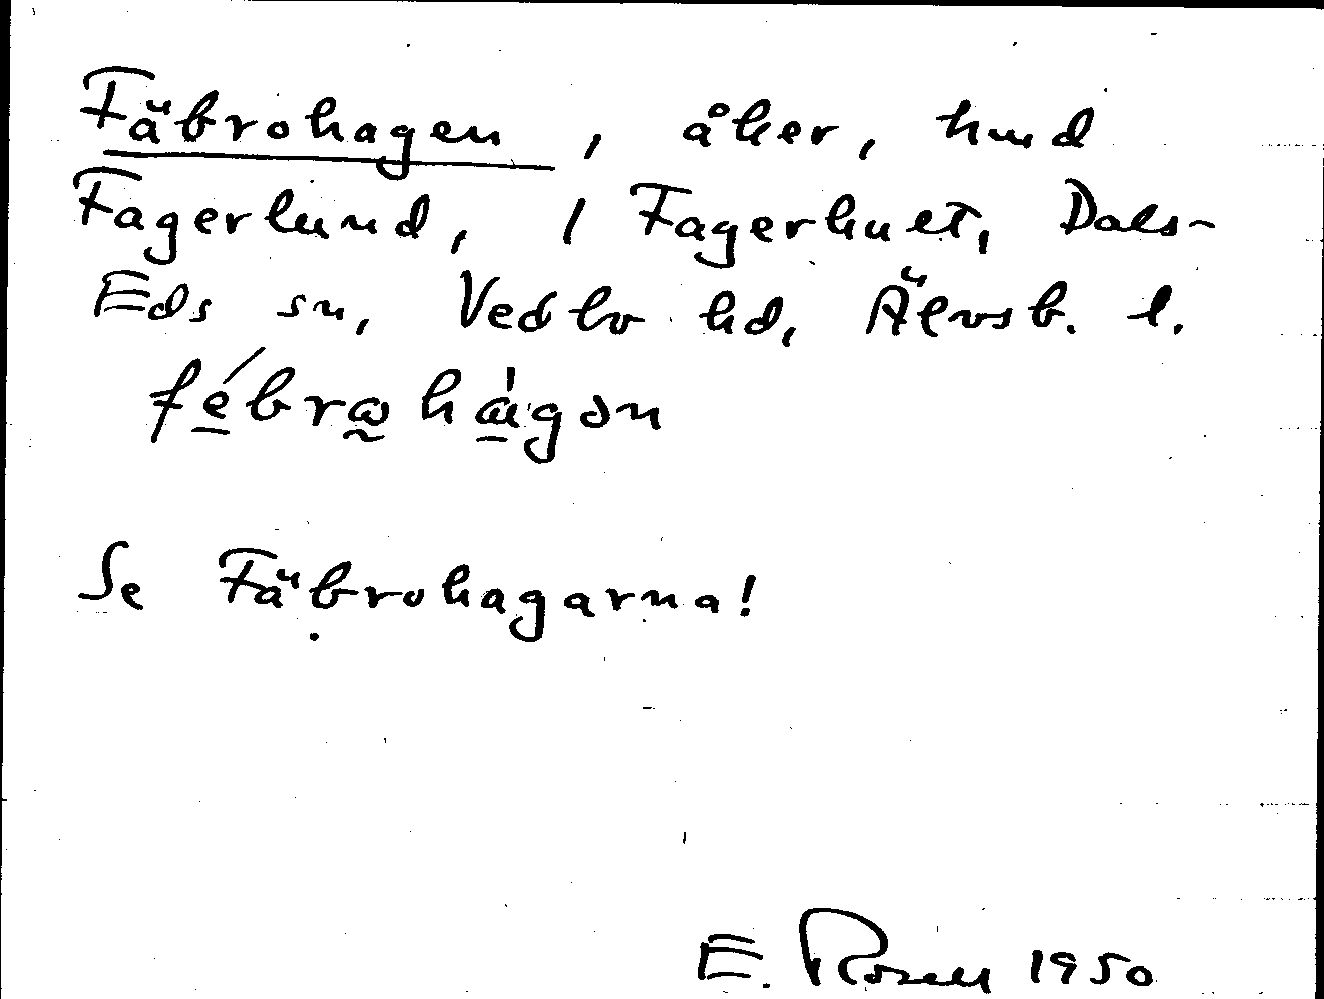 Fäbrohagen, åker, hmd
Fagerlund, 1 Fagerhult, Dals-
Eds sn, Vedbo hd, Älvsb. l.
fé̠brω̰hà̠gən
Se Fäbrohagarna!
E. Rosell 1950